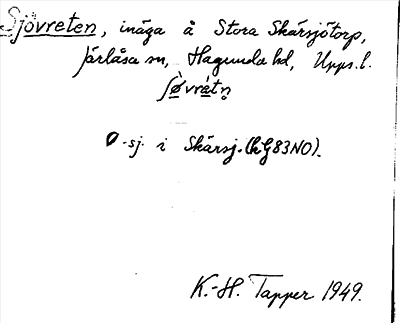 Sjövreten, inäga å Stora Skärsjötorp,
Järlåsa sn, Hagunda hd, Upps. l.
ʃö̀vrátn̥
0 -sj. i Skärsj. (hG83NO).
K.-H. Tapper 1949.